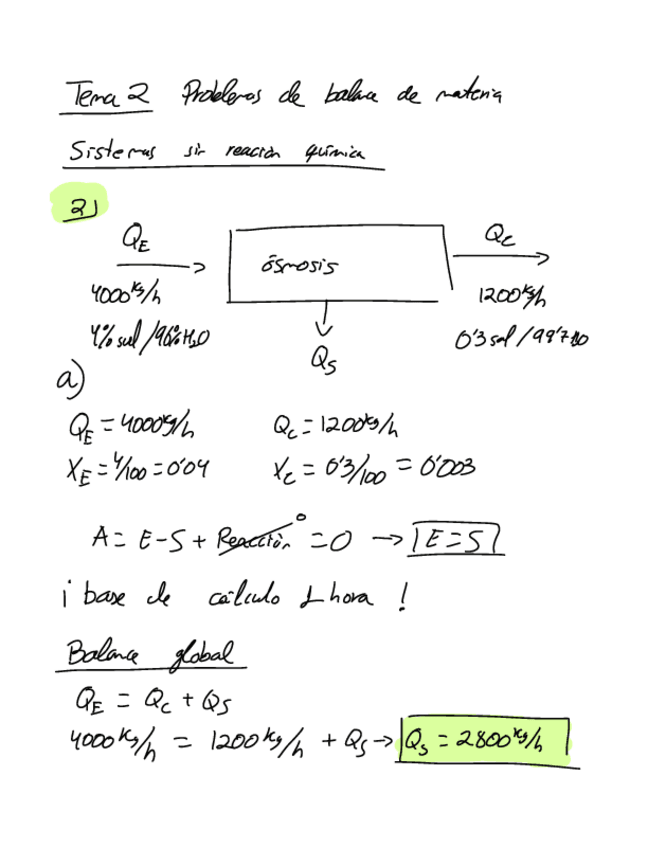 Tema 2 Problemas de balance de materia
Sistemas sin reacción química
2)
Q_E
4000 kg/h
4% sal / 96% H₂O
ósmosis
Q_S
Q_C
1200 kg/h
0'3 sal / 99'7 H₂O
a)
Q_E = 4000 kg/h Q_C = 1200 kg/h
X_E = 4/100 = 0'04 X_C = 0'3/100 = 0'003
A = E - S + Reacción⁰ = 0 → E = S
¡ base de cálculo 1 hora !
Balance global
Q_E = Q_C + Q_S
4000 kg/h = 1200 kg/h + Q_S → Q_S = 2800 kg/h